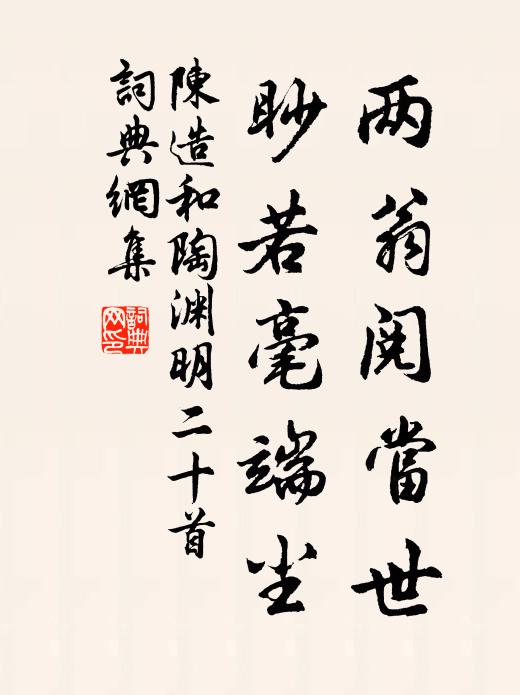 两翁阅當世
眇若毫端尘
陳造和陶渊明二十首
詞典網集
詞典网印